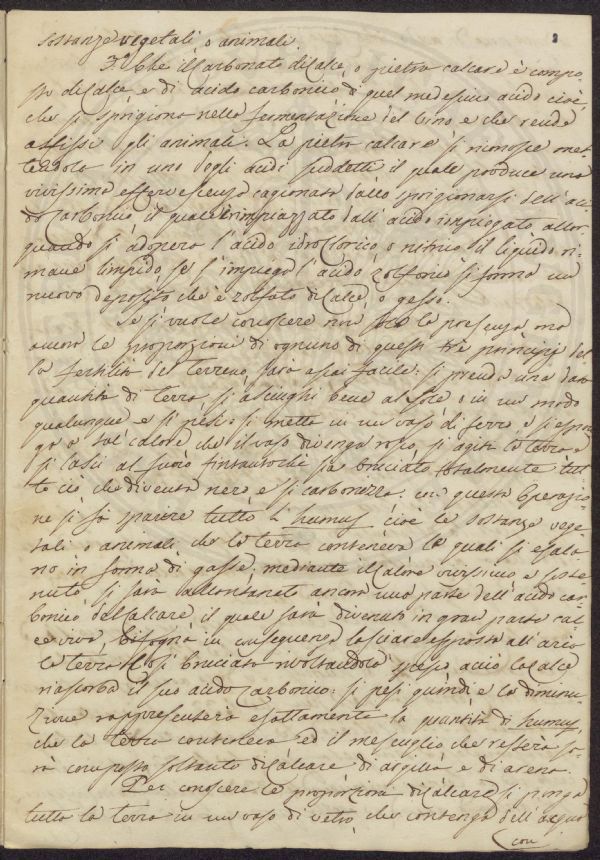 sostanze vegetali o animali.
3° Che il Carbonato di Calce, o pietra calcare è compo
sto di Calce e di acido carbonico di quel medesimo acido cioè,
che si sprigiona nella fermentazione del vino e che rende
asfissi gli animali. La pietra calcare si riconosce met
tendola in uno degli acidi suddetti il quale produce una
vivissima effervescenza cagionata dallo sprigionarsi dell' aci
do Carbonico, il quale è rimpiazzato dall' acido impiegato, allor
quando si adopera l'acido idroclorico o nitrico il liquido ri
mane limpido, se s'impiega l'acido zolforico si forma un
nuovo deposito che è zolfato di Calce, o gesso.
Se si vuole conoscere non solo la presenza ma
ancora le proporzioni di ognuno di questi tre principj del
la fertilità del terreno sarà assai facile: si prenda una data
quantità di terra si asciughi bene al Sole o in un modo
qualunque e si pesi: si metta in un vaso di ferro, e si espon
ga a tal calore che il vaso divenga rosso, si agiti la terra e
si lasci al fuoco fintantochè sia bruciato totalmente tut
to ciò che diventa nero e si carbonizza: con questa operazio
ne si fa sparire tutto l' humus cioè le sostanze vege
tali o animali che la terra conteneva le quali si esala
no in forma di gasse; mediante il calore vivissimo e soste
nuto si sarà allontanato ancora una parte dell' acido car
bonico dal calcare il quale sarà divenuto in gran parte cal
ce viva, bisogna in conseguenza lasciare esposta all' aria
la terra così bruciata involtandola spesso acciò la Calce
riassorba il suo acido Carbonico: si pesi quindi e la diminu
zione rappresenterà esattamente la quantità di humus,
che la terra conteneva ed il mescuglio che resterà sa
rà composto soltanto di Calcare di argilla e di arena.
Per conoscere le proporzioni di Calcare si ponga
tutta la terra in un vaso di vetro che contenga dell' acqua
con